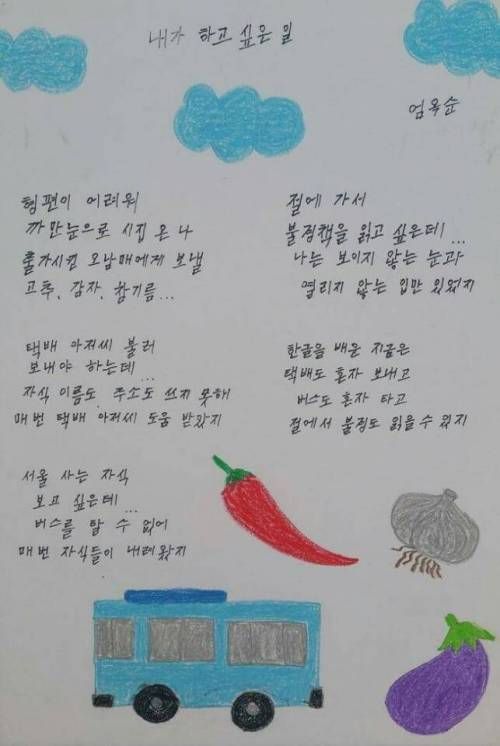 내가 하고 싶은 일
엄옥순
형편이 어려워
까만눈으로 시집 온 나
출가시킨 오남매에게 보낼
고추, 감자, 참기름...
택배 아저씨 불러
보내야 하는데...
자식 이름도 주소도 쓰지 못해
매번 택배 아저씨 도움 받았지
서울 사는 자식
보고 싶은데...
버스를 탈 수 없어
매번 자식들이 내려왔지
절에 가서
불경책을 읽고 싶은데...
나는 보이지 않는 눈과
열리지 않는 입만 있었지
한글을 배운 지금은
택배도 혼자 보내고
버스도 혼자 타고
절에서 불경도 읽을수 있지